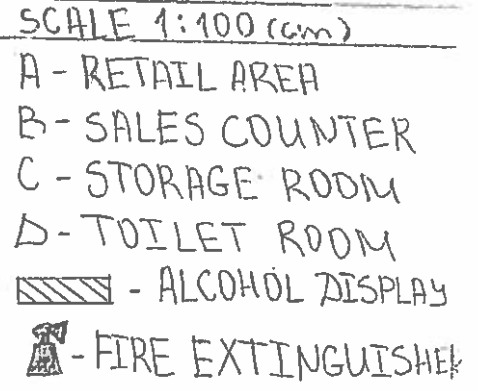 SCALE 1:100 (cm)
A - RETAIL AREA
B - SALES COUNTER
C - STORAGE ROOM
D - TOILET ROOM
- ALCOHOL DISPLAY
- FIRE EXTINGUISHER